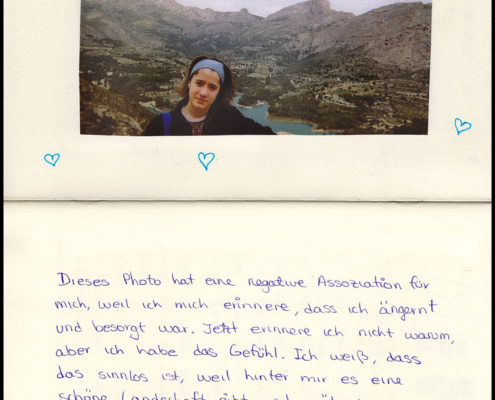 Dieses Photo hat eine negative Assoziation für
mich, weil ich mich erinnere, dass ich ängernt
und besorgt war. Jetzt erinnere ich nicht warum,
aber ich habe das Gefühl. Ich weiß, dass
das sinnlos ist, weil hinter mir es eine
schöne Landschaft gibt